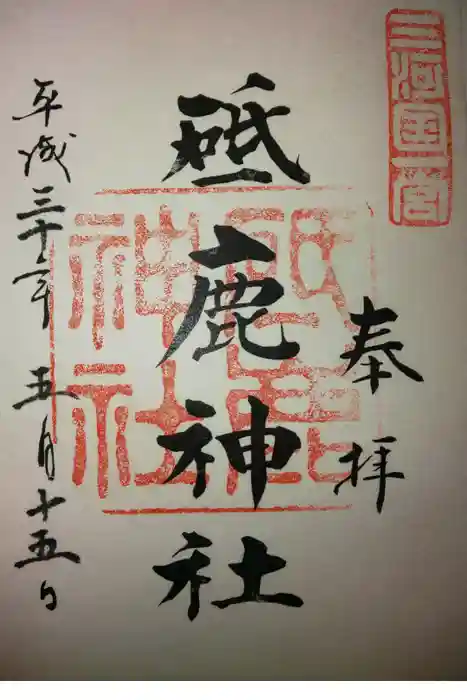 三河国一宮
奉拝
砥鹿神社
砥鹿神社
平成三十年五月十五日